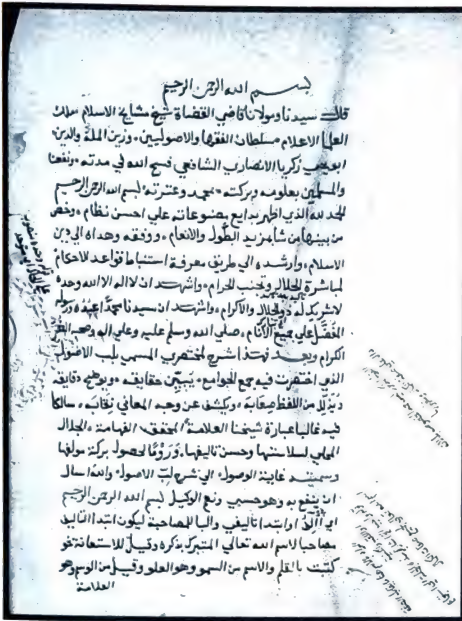 بسم الله الرحمن الرحيم
قال سيدنا ومولانا قاضي القضاة شيخ مشايخ الاسلام ملك
العلما الاعلام سلطان الفقها والاصوليين وزين الملة والدين
ابويحيى زكريا الانصاري الشافعي فسح الله في مدته ونفعنا
والمسلمين بعلومه وبركته بمحمد وعترته بسم الله الرحمن الرحيم
الحمد لله الذي اظهر بدايع مصنوعاته علي احسن نظام وخص
من بينها من شا بمزيد الطول والانعام ووفقه وهداه الي دين
الاسلام وارشده الي طريق معرفة استنباط قواعد الاحكام
لمباشرة الحلال وتجنب الحرام واشهد ان لا اله الا الله وحده
لا شريك له ذو الجلال والاكرام واشهد ان سيدنا محمدا عبده ورسوله
المفضل علي جميع الانام صلي الله وسلم عليه وعلي اله وصحبه الغر
الكرام وبعد فهذا شرح لمختصري المسمي بلب الاصول
الذي اختصرت فيه جمع الجوامع يبين حقايقه ويوضح دقايقه
ويذلل من اللفظ صعابه ويكشف عن وجه المعاني نقابه سالكا
فيه غالبا عبارة شيخنا العلامة المحقق الفهامة الجلال
المحلي لسلاستها وحسن تاليفها وروما لحصول بركة مولفها
وسميته غاية الوصول الي شرح لب الاصول والله اسال
ان ينفع به وهو حسبي ونعم الوكيل بسم الله الرحمن الرحيم
اي ابتدا تاليفي والبا للمصاحبة ليكون ابتدا التاليف
مصاحبا لاسم الله تعالي المتبرك بذكره وقيل للاستعانة نحو
كتبت بالقلم والاسم من السمو وهو العلو وقيل من الوسم وهو
العلامة